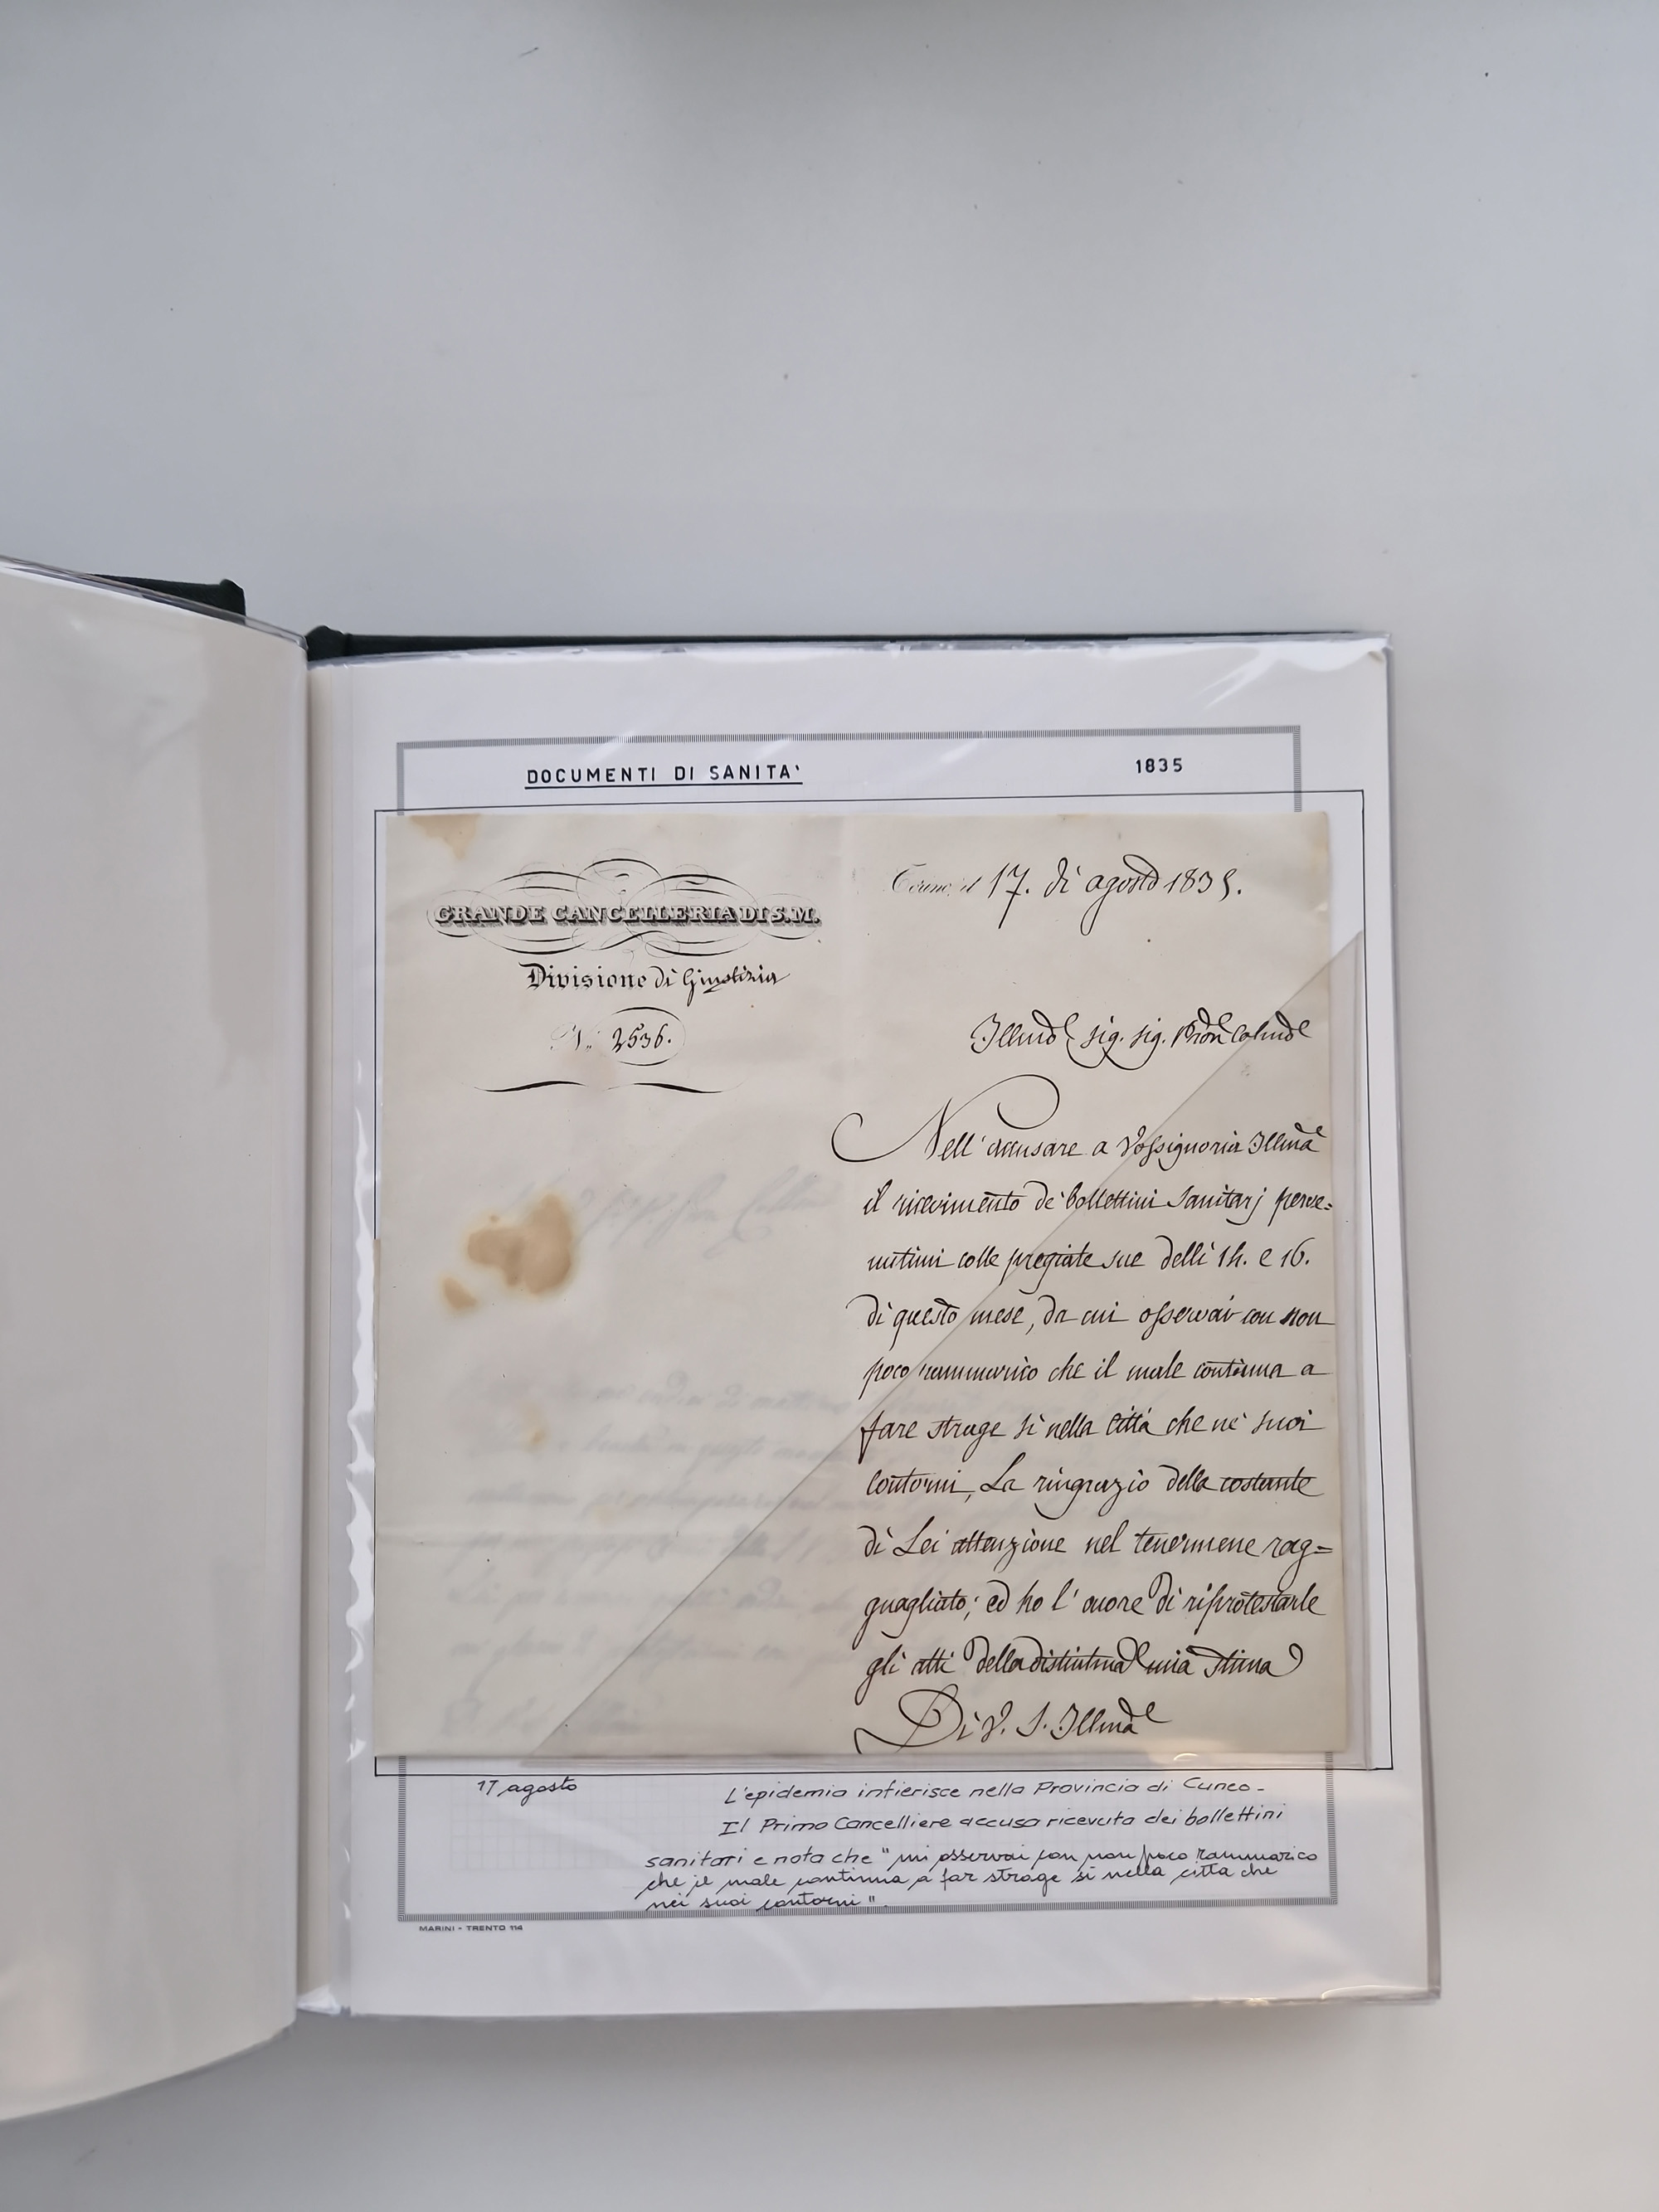 DOCUMENTI DI SANITA'
1835
GRANDE CANCELLERIA DI S.M.
Divisione di Giustizia
N.° 2536.
Torino, il 17. di agosto 1835.
Illmo sig. sig. Pron Colmo
Nell' accusare a Vossignoria Illma
il ricevimento de' bollettini Sanitarj perve=
nutimi colle pregiate sue delli 14. e 16.
di questo mese, da cui osservai con non
poco rammarico che il male continua a
fare strage sì nella Città che ne' suoi
contorni, La ringrazio della costante
di Lei attenzione nel tenermene rag=
guagliato; ed ho l' onore di riprotestarle
gli atti della distintma mia stima
Di V. S. Illma
17 agosto
L'epidemia infierisce nella Provincia di Cuneo -
Il Primo Cancelliere accusa ricevuta dei bollettini
sanitari e nota che "mi osservai con non poco rammarico
che il male continua a far strage sì nella città che
nei suoi contorni".
MARINI - TRENTO 114